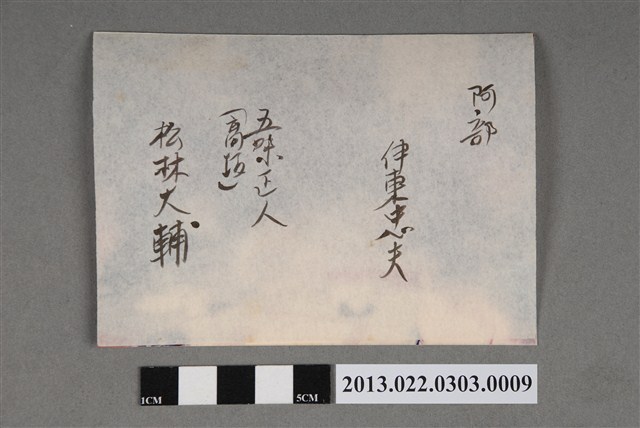 阿部
伊東忠夫
五味正人
(高坂)
松林大輔
1CM
5CM
2013.022.0303.0009